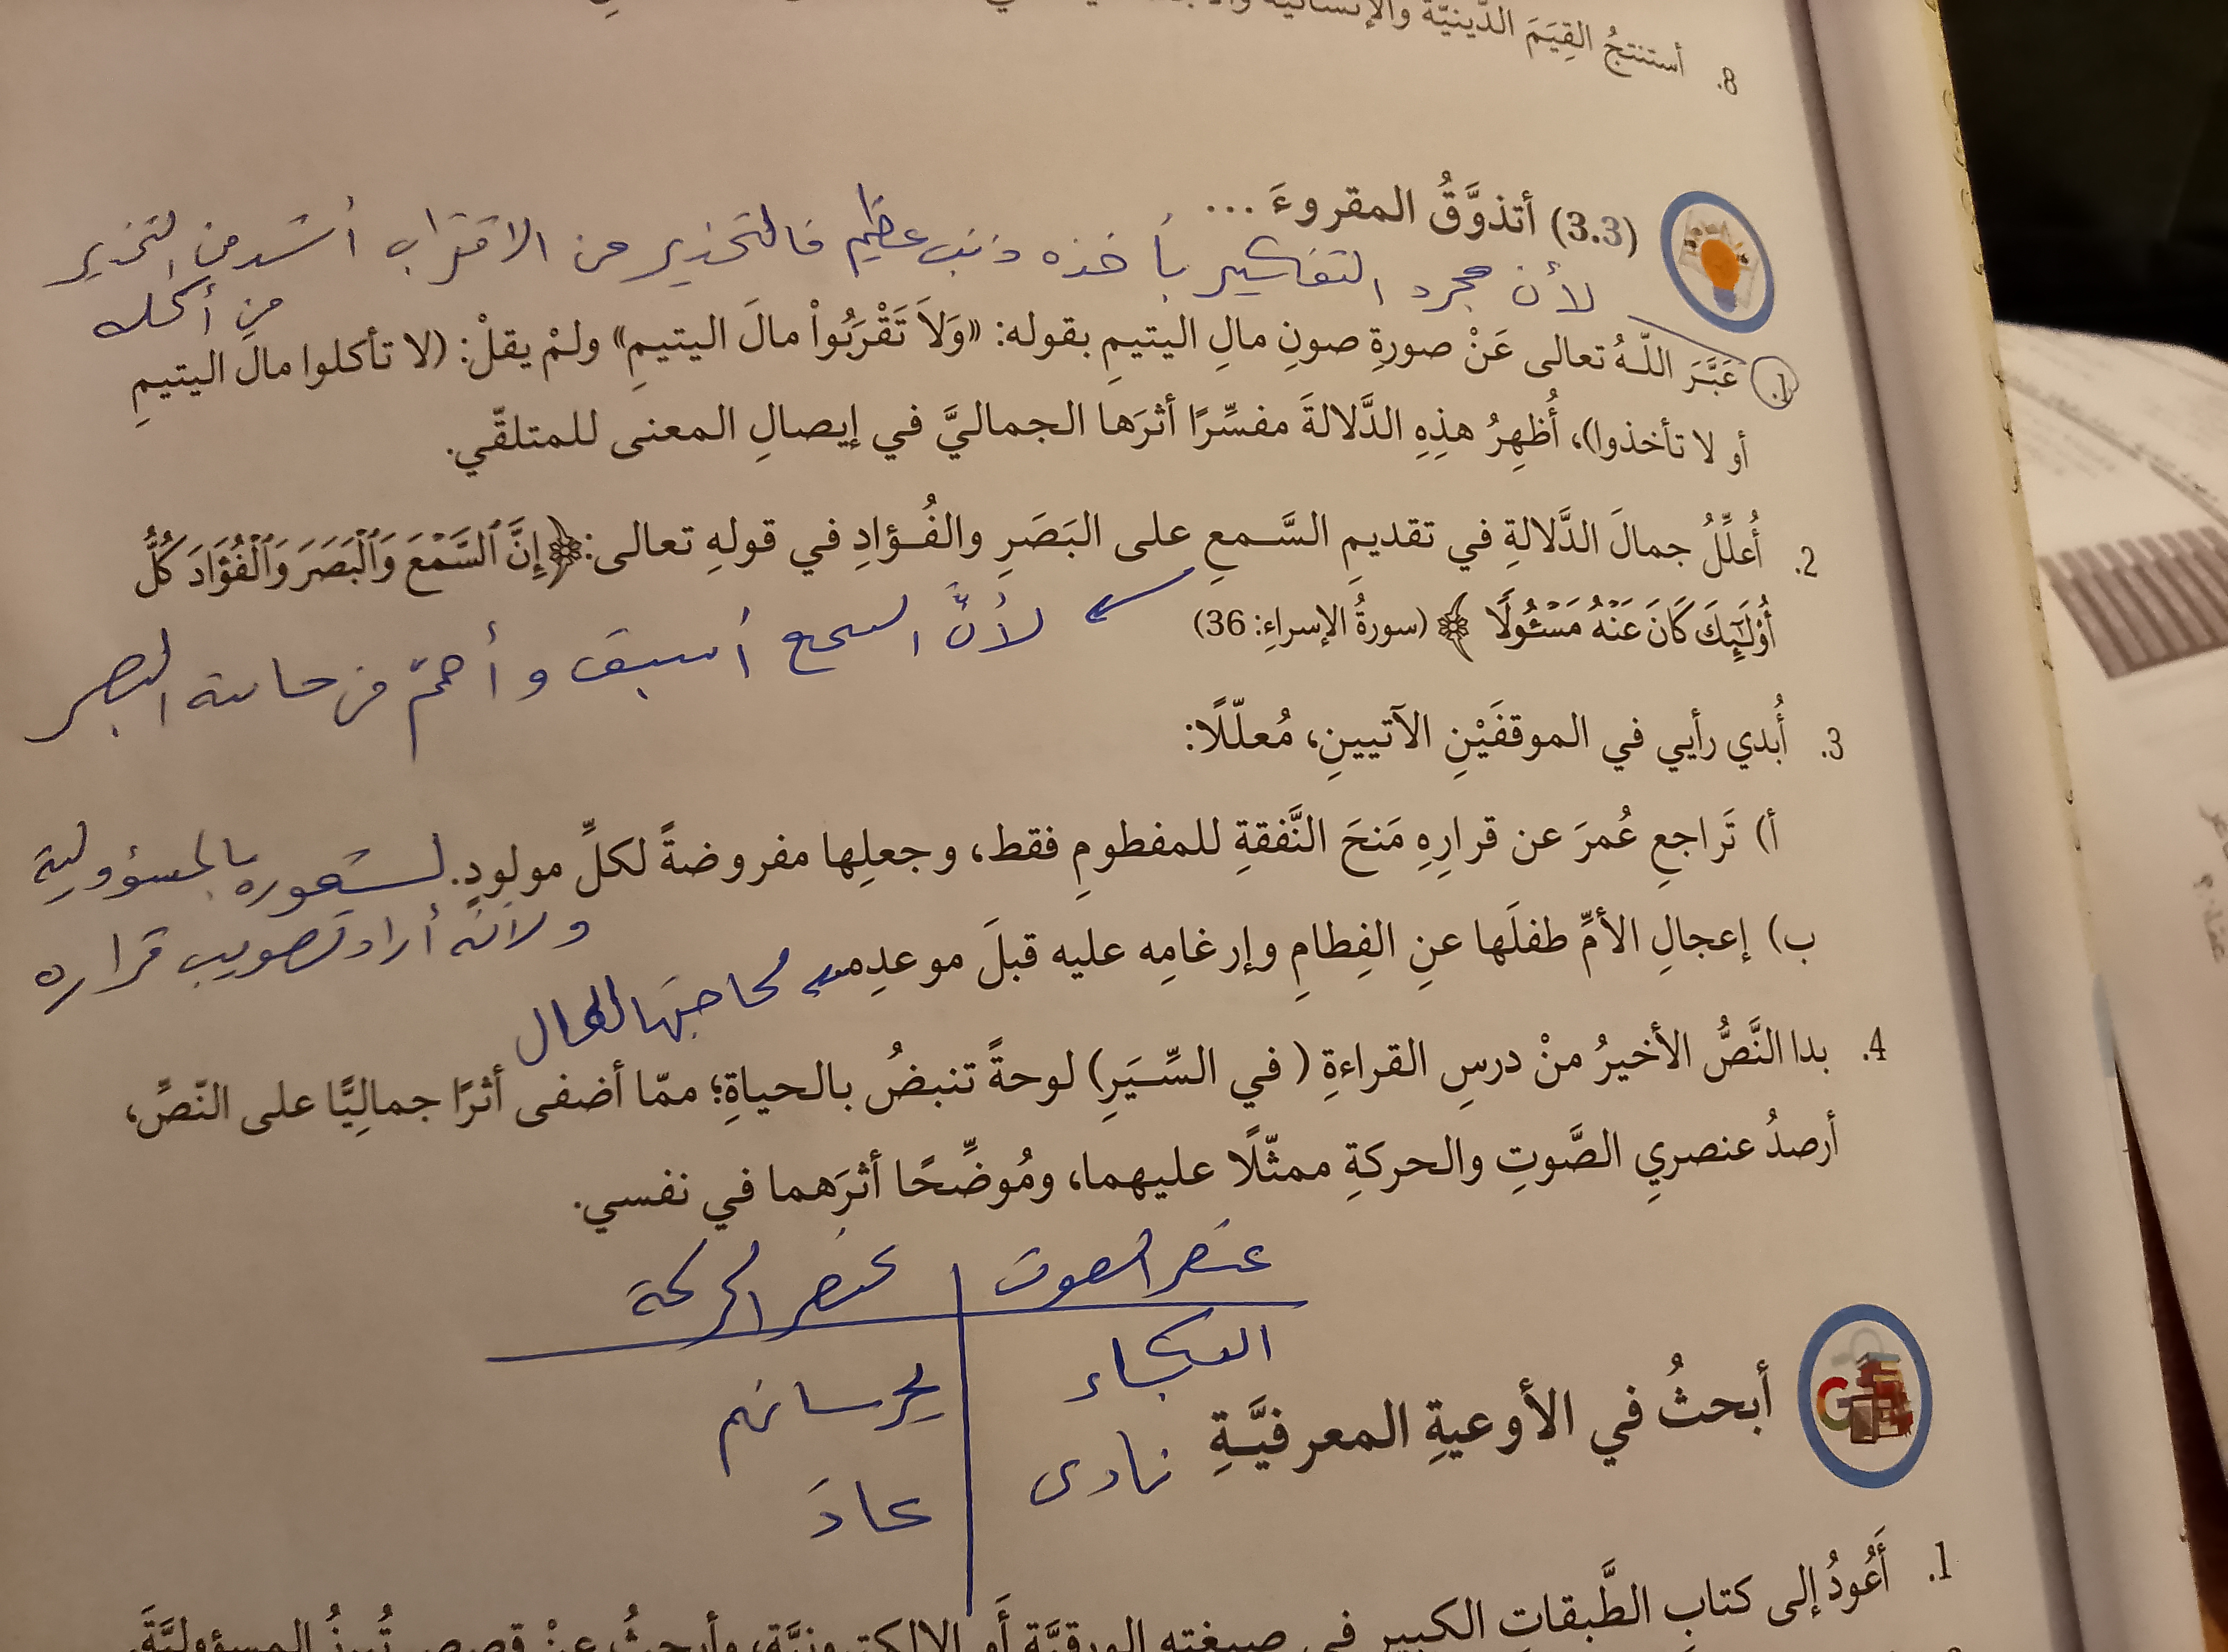 8. أستنتجُ القِيَمَ الدّينيّةَ والإنسانيّةَ
(3.3) أتذوَّقُ المقروءَ ...
لأن مجرد التفكير بأخذه ذنب عظيم فالتحذير من الاقتراب أشد من التحذير
من أكله
1. عَبَّرَ اللّهُ تعالى عَنْ صورةِ صونِ مالِ اليتيمِ بقوله: «وَلاَ تَقْرَبُواْ مالَ اليتيمِ» ولمْ يقلْ: (لا تأكلوا مالَ اليتيمِ
أو لا تأخذوا)، أُظهِرُ هذِهِ الدَّلالةَ مفسِّرًا أثرَها الجماليَّ في إيصالِ المعنى للمتلقّي.
2. أُعلِّلُ جمالَ الدَّلالةِ في تقديمِ السَّمعِ على البَصَرِ والفُؤادِ في قولهِ تعالى: ﴿إِنَّ ٱلسَّمْعَ وَٱلْبَصَرَ وَٱلْفُؤَادَ كُلُّ
أُوْلَٰٓئِكَ كَانَ عَنْهُ مَسْـُٔولًا ﴾ (سورةُ الإسراءِ: 36)
لأنَّ السمع أسبق و أهمّ من حاسة البصر
3. أُبدي رأيي في الموقفَيْنِ الآتيينِ، مُعلّلًا:
أ) تَراجعِ عُمرَ عن قرارِهِ مَنحَ النَّفقةِ للمفطومِ فقط، وجعلِها مفروضةً لكلِّ مولودٍ. لشعوره بالمسؤولية
ولأنه أراد تصويب قراره
ب) إعجالِ الأمِّ طفلَها عنِ الفِطامِ وإرغامِه عليه قبلَ موعدِه لحاجتها للمال
4. بدا النَّصُّ الأخيرُ منْ درسِ القراءةِ (في السِّيَرِ) لوحةً تنبضُ بالحياةِ؛ ممّا أضفى أثرًا جماليًّا على النّصِّ،
أرصدُ عنصريِ الصَّوتِ والحركةِ ممثّلًا عليهما، ومُوضِّحًا أثرَهما في نفسي.
عنصر الصوت عنصر الحركة
البكاء يحرسانهم
نادى عادَ
أبحثُ في الأوعيةِ المعرفيَّةِ
1. أَعُودُ إلى كتابِ الطَّبقاتِ الكبيرِ في صيغتِه الورقيَّةِ أَو الإلكترونيَّةِ، وأبحثُ عنْ قصصٍ تُبرزُ المسؤوليَّةَ